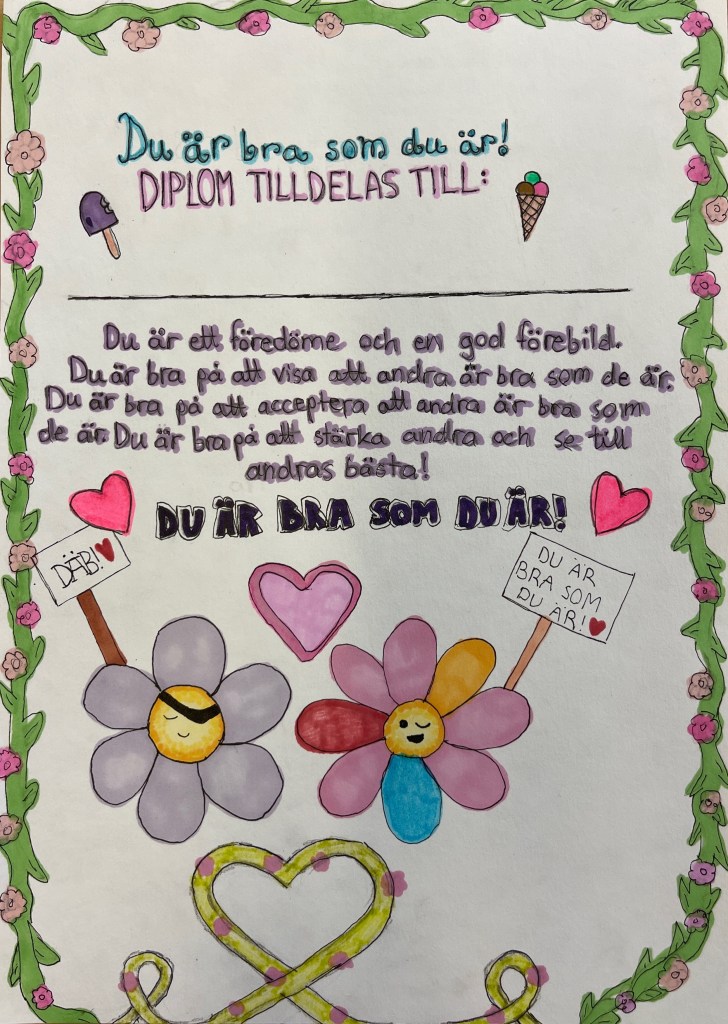 Du är bra som du är!
DIPLOM TILLDELAS TILL:
Du är ett föredöme och en god förebild.
Du är bra på att visa att andra är bra som de är.
Du är bra på att acceptera att andra är bra som
de är. Du är bra på att stärka andra och se till
andras bästa!
DU ÄR BRA SOM DU ÄR!
DÄB!
DU ÄR
BRA SOM
DU ÄR!